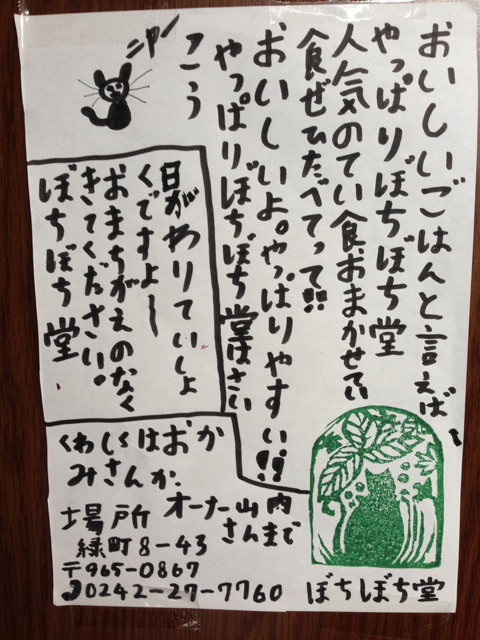 おいしいごはんと言えば、
やっぱりぼちぼち堂
人気のてい食、おまかせてい
食ぜひたべてって!!
おいしいよ。やっぱりやすい!!
やっぱりぼちぼち堂はさい
こう
ニャー
日がわりていしょ
くですよー
おまちがえのなく
きてください。
ぼちぼち堂
くわしくはおか
みさんか、
オーナー山内
さんまで
場所
緑町8-43
〒965-0867
0242-27-7760
ぼちぼち堂